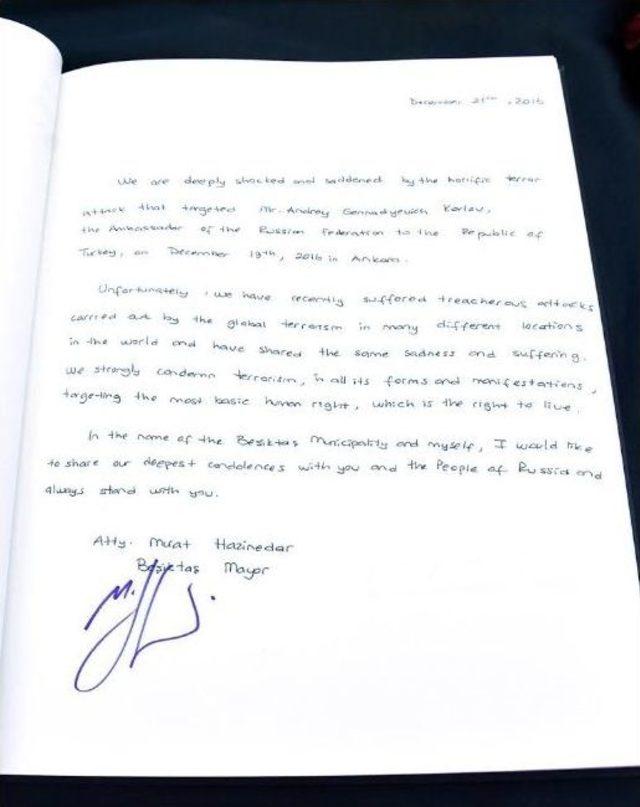 December 21th, 2016
We are deeply shocked and saddened by the horrific terror
attack that targeted Mr. Andrey Gennadyevich Karlov,
the Ambassador of the Russian Federation to the Republic of
Turkey, on December 19th, 2016 in Ankara.
Unfortunately, we have recently suffered treacherous attacks
carried out by the global terrorism in many different locations
in the world and have shared the same sadness and suffering.
We strongly condemn terrorism, in all its forms and manifestations,
targeting the most basic human right, which is the right to live.
In the name of the Beşiktaş Municipality and myself, I would like
to share our deepest condolences with you and the People of Russia and
always stand with you.
Atty. Murat Hazinedar
Beşiktaş Mayor